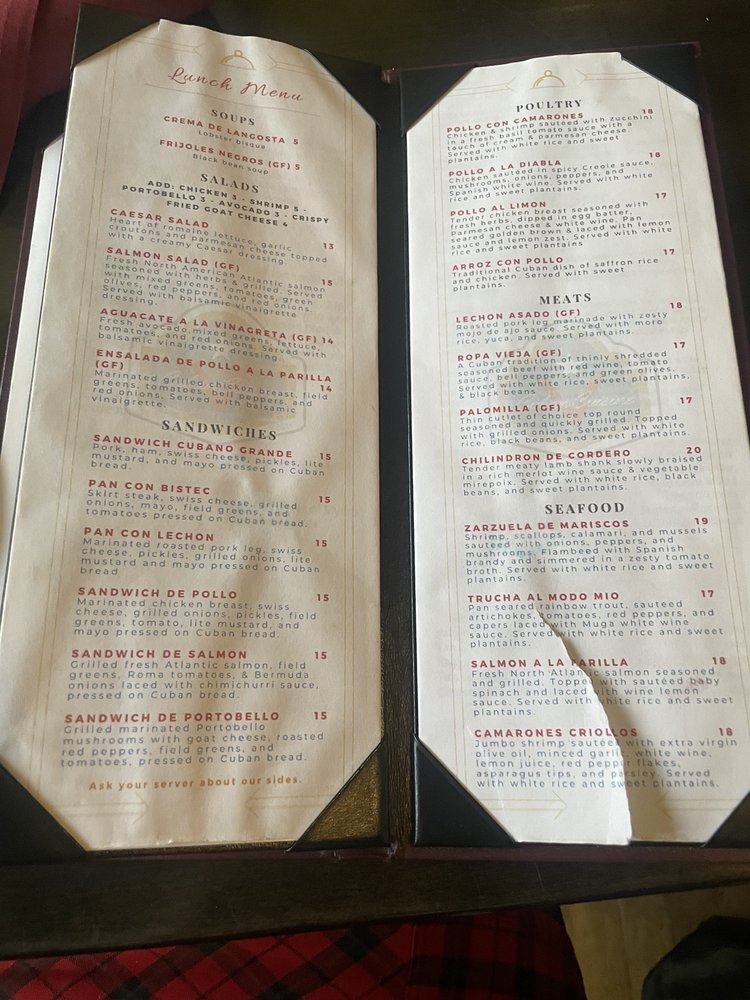 Lunch Menu
SOUPS
CREMA DE LANGOSTA 5
Lobster bisque
FRIJOLES NEGROS (GF) 5
Black bean soup
SALADS
ADD: CHICKEN 3 - SHRIMP 5 -
PORTOBELLO 3 - AVOCADO 3 - CRISPY
FRIED GOAT CHEESE 4
CAESAR SALAD 13
Heart of romaine lettuce, garlic
croutons and parmesan cheese topped
with a creamy Caesar dressing.
SALMON SALAD (GF)
Fresh North American Atlantic salmon
seasoned with herbs & grilled. Served 15
with mixed greens, tomatoes, green
olives, red peppers, and red onions.
Served with balsamic vinaigrette
dressing.
AGUACATE A LA VINAGRETA (GF) 14
Fresh avocado, mixed greens, lettuce,
tomatoes, and red onions. Served with
balsamic vinaigrette dressing.
ENSALADA DE POLLO A LA PARILLA
(GF) 14
Marinated grilled chicken breast, field
greens, tomatoes, bell peppers, and
red onions. Served with balsamic
vinaigrette.
SANDWICHES
SANDWICH CUBANO GRANDE 15
Pork, ham, swiss cheese, pickles, lite
mustard, and mayo pressed on Cuban
bread.
PAN CON BISTEC 15
Skirt steak, swiss cheese, grilled
onions, mayo, field greens, and
tomatoes pressed on Cuban bread.
PAN CON LECHON 15
Marinated roasted pork leg, swiss
cheese, pickles, grilled onions, lite
mustard and mayo pressed on Cuban
bread
SANDWICH DE POLLO 15
Marinated chicken breast, swiss
cheese, grilled onions, pickles, field
greens, tomato, lite mustard, and
mayo pressed on Cuban bread.
SANDWICH DE SALMON 15
Grilled fresh Atlantic salmon, field
greens, Roma tomatoes, & Bermuda
onions laced with chimichurri sauce,
pressed on Cuban bread.
SANDWICH DE PORTOBELLO 15
Grilled marinated Portobello
mushrooms with goat cheese, roasted
red peppers, field greens, and
tomatoes, pressed on Cuban bread.
Ask your server about our sides.
POULTRY
POLLO CON CAMARONES 18
Chicken & shrimp sautéed with zucchini
in a fresh basil tomato sauce with a
touch of cream & parmesan cheese.
Served with white rice and sweet
plantains.
POLLO A LA DIABLA 18
Chicken sautéed in spicy Creole sauce,
mushrooms, onions, peppers, and
Spanish white wine. Served with white
rice and sweet plantains.
POLLO AL LIMON 17
Tender chicken breast seasoned with
fresh herbs, dipped in egg batter,
Parmesan cheese & white wine. Pan
seared golden brown & laced with lemon
sauce and lemon zest. Served with white
rice and sweet plantains
ARROZ CON POLLO 17
Traditional Cuban dish of saffron rice
and chicken. Served with sweet
plantains.
MEATS
LECHON ASADO (GF) 18
Roasted pork leg marinade with zesty
mojo de ajo sauce. Served with moro
rice, yuca, and sweet plantains.
ROPA VIEJA (GF) 17
A Cuban tradition of thinly shredded
seasoned beef with red wine, tomato
sauce, bell peppers, and green olives.
Served with white rice, sweet plantains,
& black beans
PALOMILLA (GF) 17
Thin cutlet of choice top round
seasoned and quickly grilled. Topped
with grilled onions. Served with white
rice, black beans, and sweet plantains.
CHILINDRON DE CORDERO 20
Tender meaty lamb shank slowly braised
in a rich merlot wine sauce & vegetable
mirepoix. Served with white rice, black
beans, and sweet plantains.
SEAFOOD
ZARZUELA DE MARISCOS 19
Shrimp, scallops, calamari, and mussels
sautéed with onions, peppers, and
mushrooms. Flambeed with Spanish
brandy and simmered in a zesty tomato
broth. Served with white rice and sweet
plantains.
TRUCHA AL MODO MIO 17
Pan seared rainbow trout, sautéed
artichokes, tomatoes, red peppers, and
capers laced with Muga white wine
sauce. Served with white rice and sweet
plantains.
SALMON A LA PARILLA 18
Fresh North Atlantic salmon seasoned
and grilled. Topped with sautéed baby
spinach and laced with wine lemon
sauce. Served with white rice and sweet
plantains.
CAMARONES CRIOLLOS 18
Jumbo shrimp sautéed with extra virgin
olive oil, minced garlic, white wine,
lemon juice, red pepper flakes,
asparagus tips, and parsley. Served
with white rice and sweet plantains.